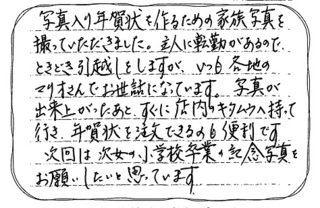 写真入り年賀状を作るための家族写真を
撮っていただきました。主人に転勤があるので、
ときどき引越しをしますが、いつも各地の
マリオさんでお世話になっています。写真が
出来上がったあと、すぐに店内のキタムラへ持って
行き、年賀状を注文できるのも便利です
次回は次女の小学校卒業の記念写真を
お願いしたいと思っています